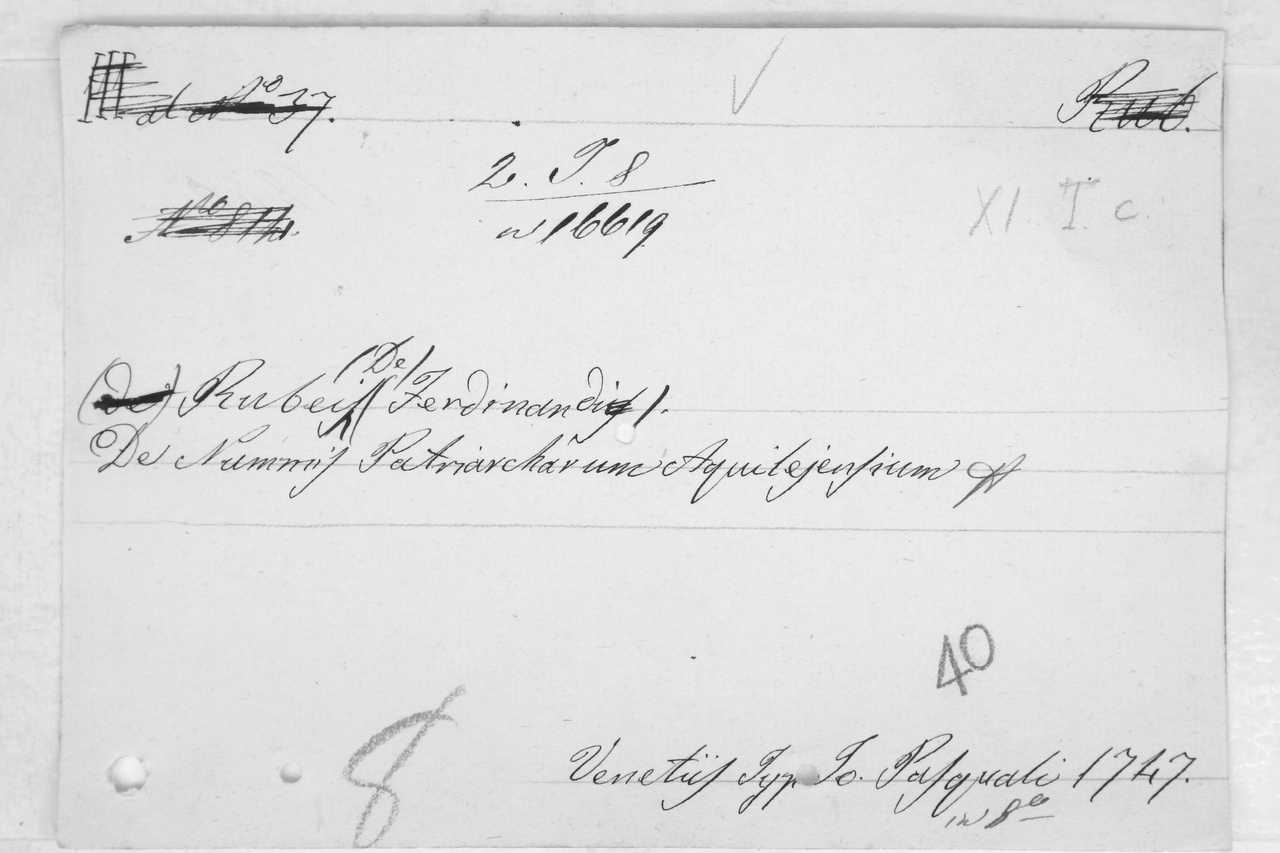 III ad No 37.
Rub.
2. T. 8
XI. I. c.
No 811.
n 16619
(de) Rubeis (De) (Ferdinandis).
De Nummis Patriarcharum Aquilejensium
40
8
Venetiis Typ. Jo. Pasquali 1747.
in 8o